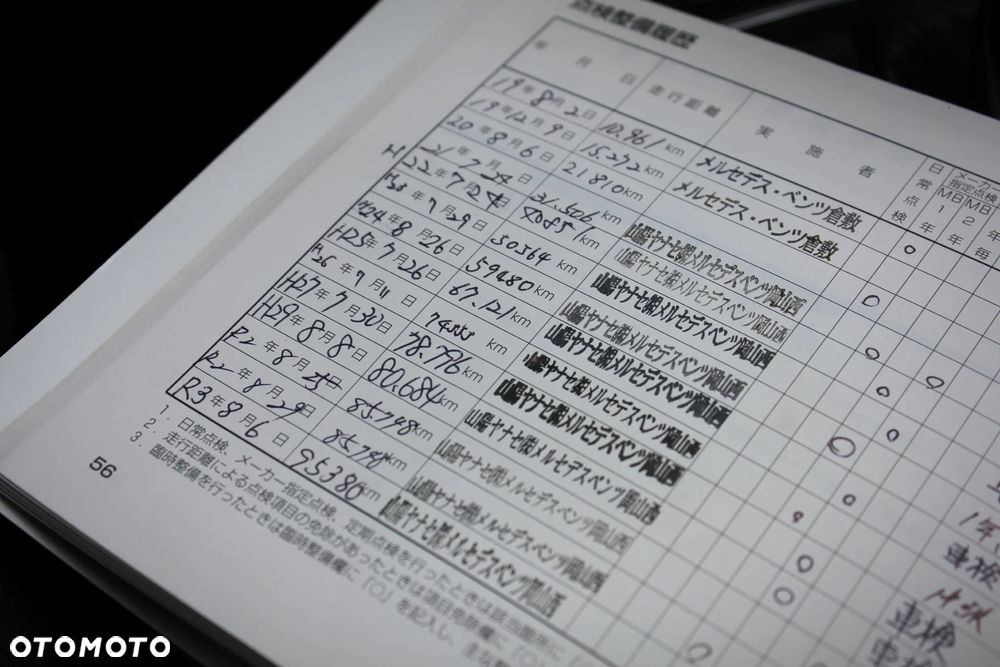 点検整備履歴
年 月 日 走行距離 実施者 日常点検 メーカー指定点検 MB1年 MB2年毎
19年8月2日 10,961 km メルセデス・ベンツ倉敷
19年12月9日 15,272 km メルセデス・ベンツ倉敷
20年8月6日 21810km 山陽ヤナセ㈱メルセデスベンツ岡山西
21年7月24日 31,506 km 山陽ヤナセ㈱メルセデスベンツ岡山西
H22年7月 日 km 山陽ヤナセ㈱メルセデスベンツ岡山西
H23年7月29日 50564 km 山陽ヤナセ㈱メルセデスベンツ岡山西
H24年8月26日 59480 km 山陽ヤナセ㈱メルセデスベンツ岡山西
H25年7月26日 67,121 km 山陽ヤナセ㈱メルセデスベンツ岡山西
26年7月11日 km 山陽ヤナセ㈱メルセデスベンツ岡山西
H27年7月30日 78,796 km 山陽ヤナセ㈱メルセデスベンツ岡山西
H29年8月8日 80,684km 山陽ヤナセ㈱メルセデスベンツ岡山西
R2年8月 日 85748km 山陽ヤナセ㈱メルセデスベンツ岡山西
R2年8月29日 85,748km 山陽ヤナセ㈱メルセデスベンツ岡山西
R3年8月6日 95380km 山陽ヤナセ㈱メルセデスベンツ岡山西
車検
車検
1．日常点検、メーカー指定点検、定期点検を行ったときは該当箇所に「
2．走行距離による点検項目の免除があったときは項目免除欄に「○
3．臨時整備を行ったときは臨時整備欄に「○」を記入し、主な整
56
OTOMOTO